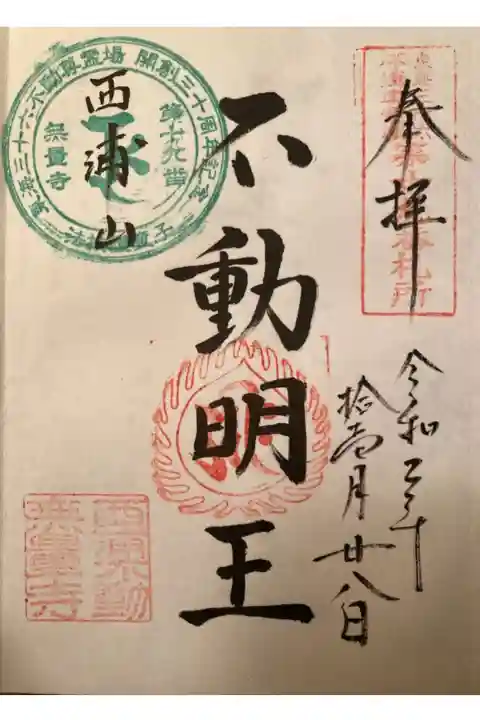 奉拝
札所
令和三年
拾壱月廿八日
不動明王
西浦山
東海三十六不動尊霊場 開創三十周年記念
第十九番
無量寺
無量寺